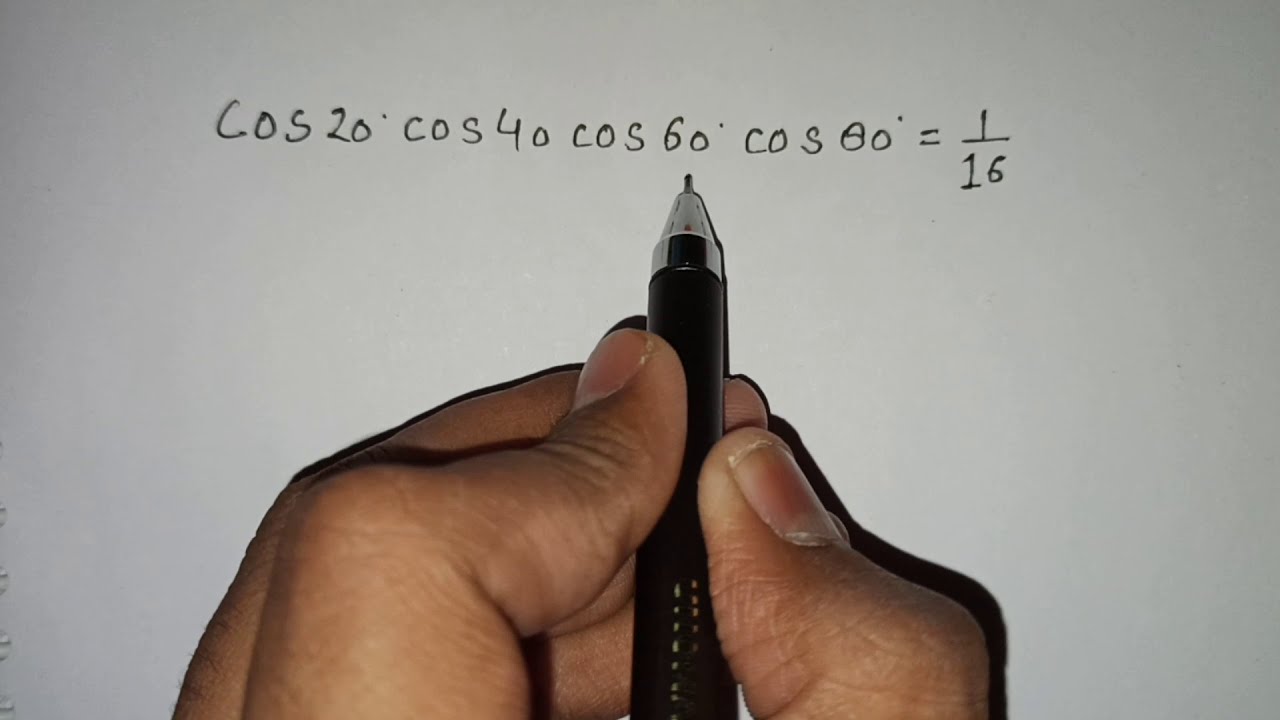 cos 20° cos 40 cos 60° cos 80° = 1/16